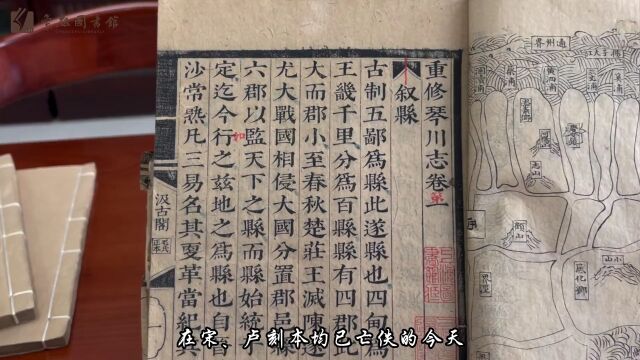 常熟圖書館
重修琴川志卷第一
叙縣
古制五鄙爲縣此遂縣也四甸爲
王畿千里分爲百縣縣有四郡此
大而郡小至春秋楚莊王滅陳遂
尤大戰國相侵大國分置郡邑
六郡以監天下之縣而縣始統
和
定迄今行之兹地之爲縣也自晉
沙常熟凡三易名其更革當紀
汲古閣
毛氏正本
通州界
在宋、卢刻本均已亡佚的今天